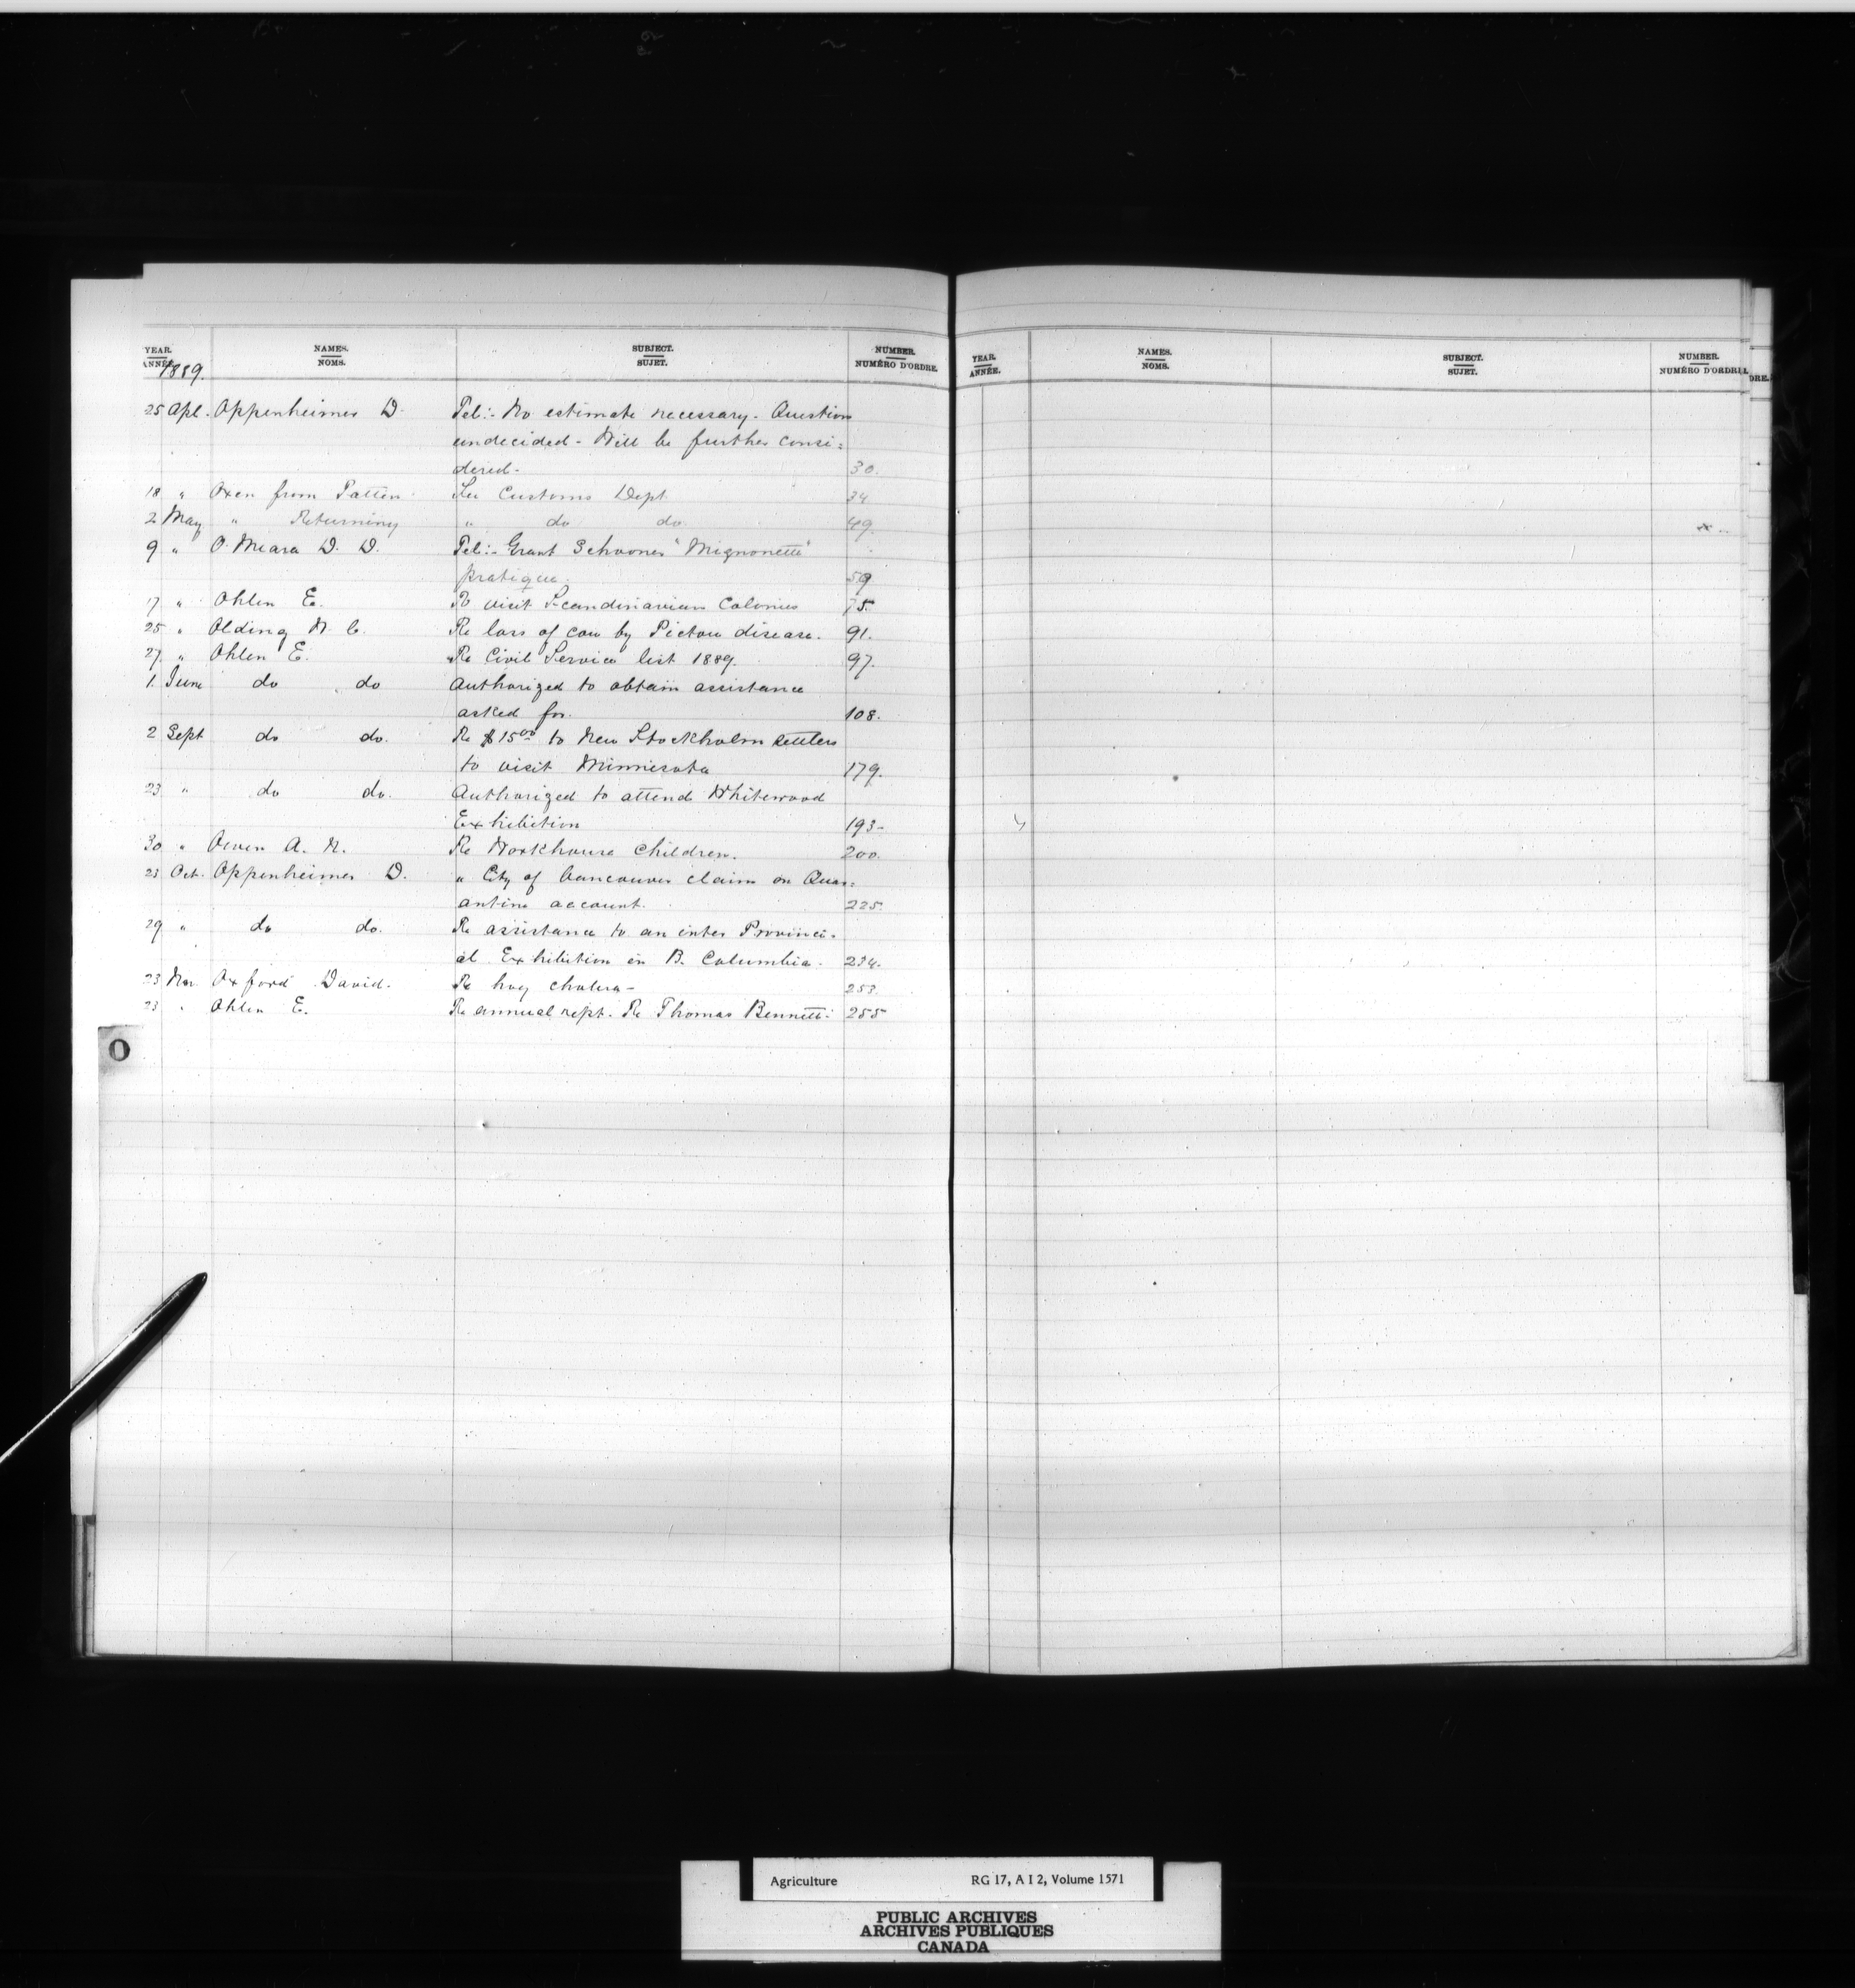 YEAR. NAMES. SUBJECT. NUMBER.
ANNÉE. NOMS. SUJET. NUMÉRO D'ORDRE.
1889.
25 Apl. Oppenheimer D. Tel:- No estimate necessary. Question
undecided - Will be further consi=
dered- 30.
18 " Oxen from Patten See Customs Dept 34
2 May " Returning " do do. 49.
9 " O'Meara D. D. Tel:- Grant Schooner "Mignonette"
pratique. 59
17 " Ohlen E. To visit Scandinavian Colonies 75.
25 " Olding N. C. Re loss of cow by Pictou disease. 91.
27. " Ohlen E. Re Civil Service list 1889. 97.
1. June do do Authorized to obtain assistance
asked for. 108.
2 Sept do do. Re $15.00 to New Stockholm settlers
to visit Minnesota 179.
23 " do do. Authorized to attend Whitewood
Exhibition 193-
30 " Owen A. R. Re Workhouse Children. 200.
23 Oct. Oppenheimer D. " City of Vancouver claim on Quar=
antine account. 225.
29 " do do. Re assistance to an inter Provinci-
al Exhibition in B. Columbia. 234.
23 Nov. Oxford David. Re hog cholera- 253.
23 " Ohlen E. Re annual rept. Re Thomas Bennett. 255
O
YEAR. NAMES. SUBJECT. NUMBER.
ANNÉE. NOMS. SUJET. NUMÉRO D'ORDRE
DRE.
Agriculture RG 17, A I 2, Volume 1571
PUBLIC ARCHIVES
ARCHIVES PUBLIQUES
CANADA